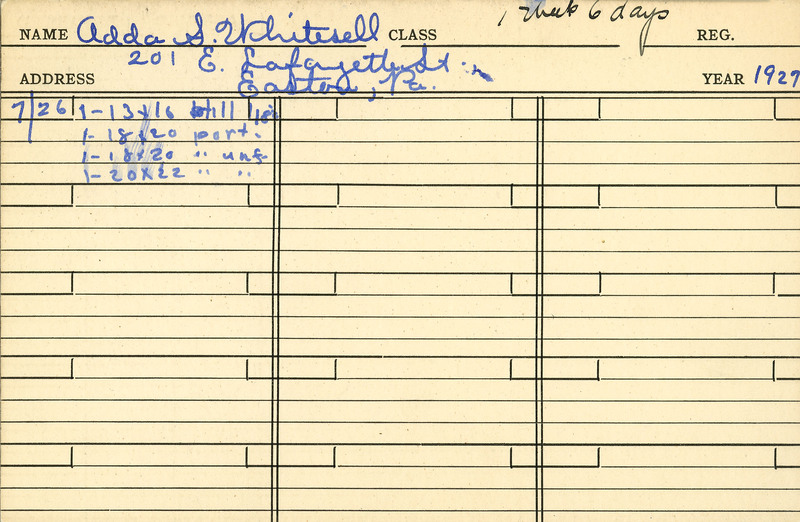 1 week 6 days
NAME Adda S. Whitesell CLASS REG.
201 E. Lafayette St.
ADDRESS Easton, Pa. YEAR 1927
7/26 1-13x16 still
1-18x20 port.
1-18x20 " unf
1-20x22 " "